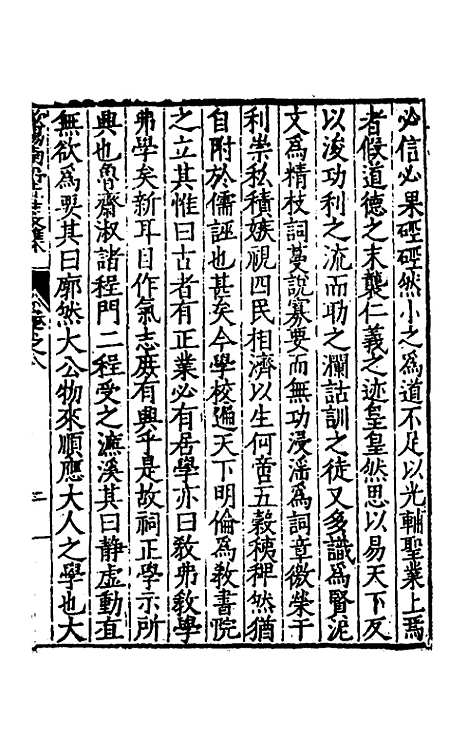 必信必果硜硜然小之為道不足以光輔聖業上焉
者假道德之末襲仁義之迹皇皇然思以易天下反
以浚功利之流而助之瀾詁訓之徒又多識為賢泥
文為精枝詞蔓說寡要而無功浸滛為詞章徼榮干
利崇私積嫉視四民相濟以生何啻五穀稊稗然猶
自附於儒誣也甚矣今學校遍天下明倫為敎書院
之立其惟曰古者有正業必有居學亦曰敎弗敎學
弗學矣新耳目作氣志庻有興乎是故祠正學示所
興也魯齋淑諸程門二程受之濂溪其曰靜虛動直
無欲為要其曰廓然大公物來順應大人之學也大
之八
二